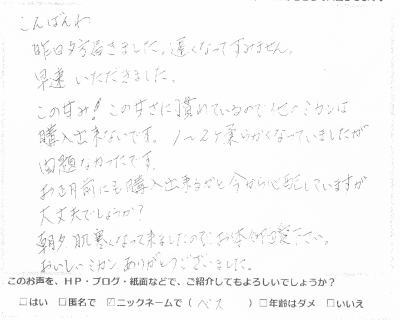 こんばんわ
昨日夕方届きました。遅くなってすみません。
早速いただきました。
この甘み！この甘さに慣れているので他のミカンは
購入出来ないです。1〜2ケ柔らかくなっていましたが
問題なかったです。
お正月前にも購入出来るかと今から心配していますが
大丈夫でしょうか？
朝夕肌寒くなって来ましたので、お体ご自愛ください。
おいしいミカンありがとうございました。
このお声を、HP・ブログ・紙面などで、ご紹介してもよろしいでしょうか？
□はい □匿名で ☑ニックネームで（ ベス ）□年齢はダメ □いいえ